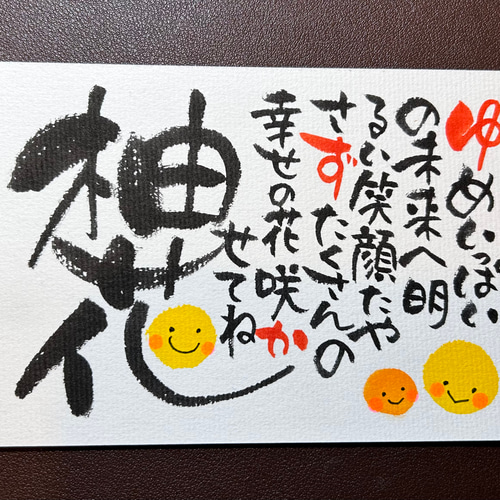 ゆめいっぱい
の未来へ明
るい笑顔たや
さずたくさんの
幸せの花咲か
せてね
柚花